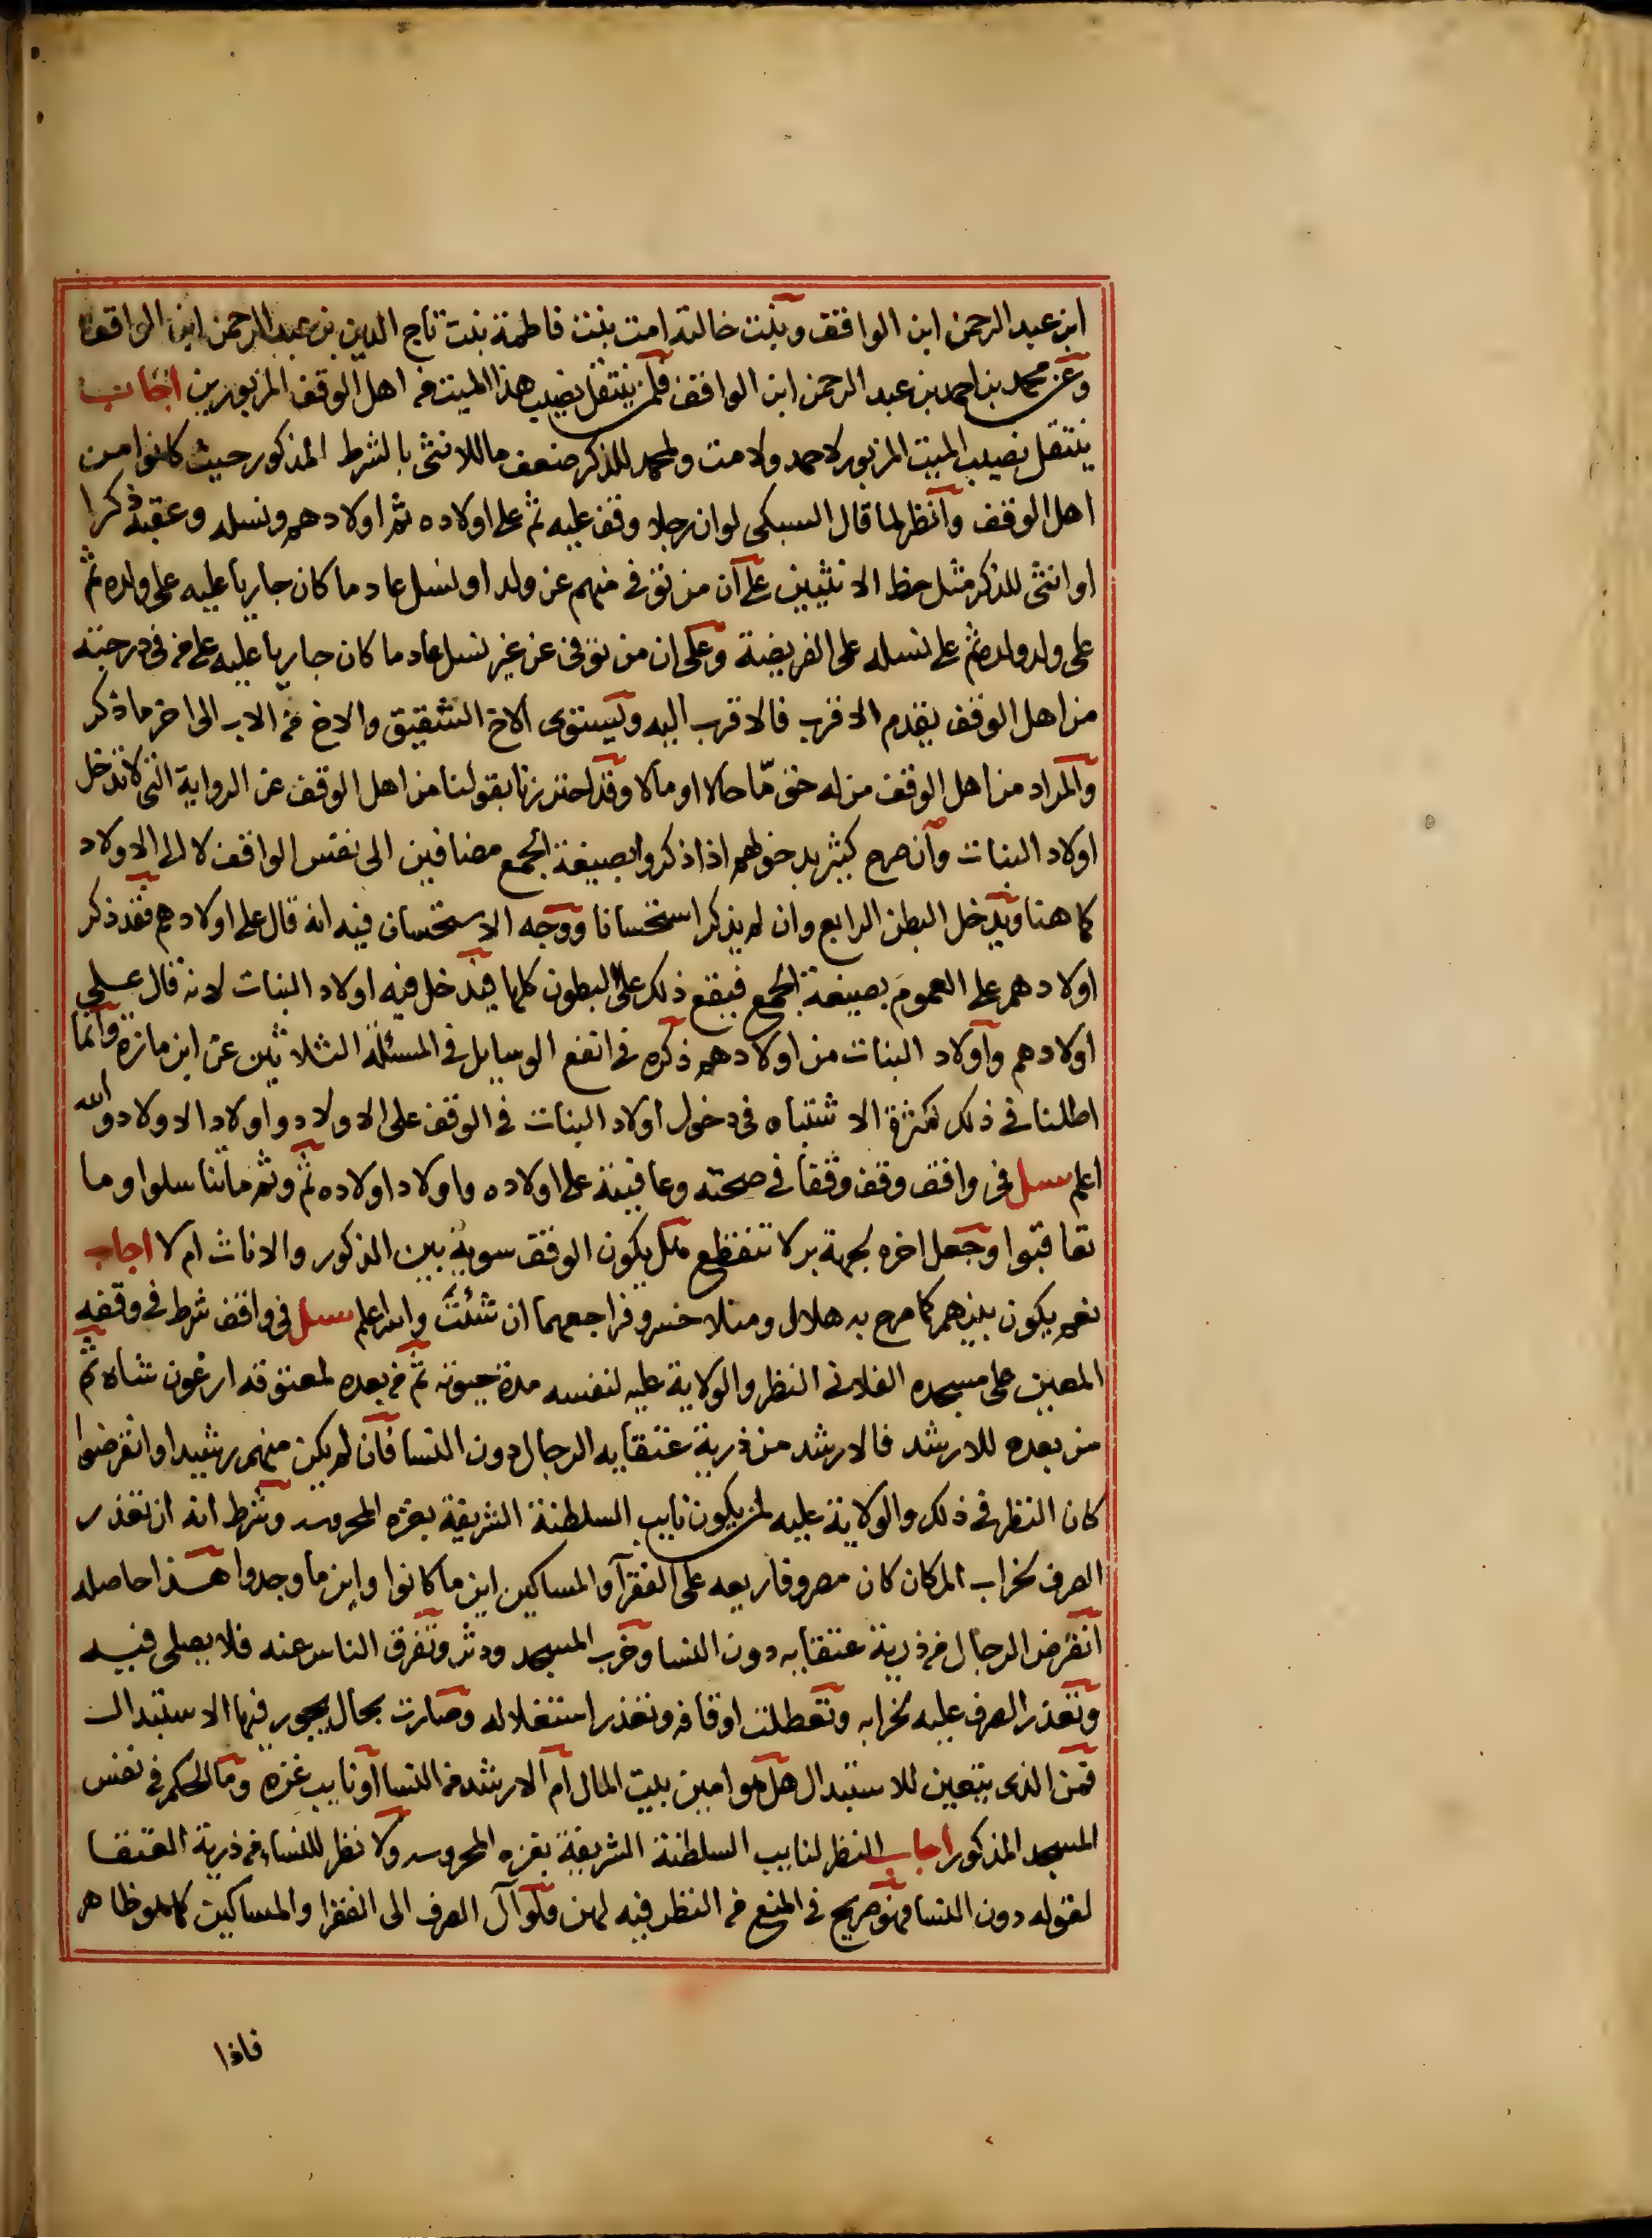 ابن عبد الرحمن ابن الواقف وبنت خالته امت بنت فاطمة بنت تاج الدين بن عبد الرحمن ابن الواقف
وعن محمد بن احمد بن عبد الرحمن ابن الواقف فلمن ينتقل نصيب هذا الميت من اهل الوقف المزبورين اجاب
ينتقل نصيب الميت المزبور لاحمد ولامت ولمحمد للذكر ضعف ما للانثى بالشرط المذكور حيث كانوا من
اهل الوقف وانظر لما قال السبكى لو ان رجلا وقف عليه ثم على اولاده ثم اولادهم ونسله وعقبه ذكرا
او انثى للذكر مثل حظ الانثيين على ان من توفى منهم عن ولد او نسل عاد ما كان جاريا عليه على ولده ثم
على ولد ولده ثم على نسله على الفريضة وعلى ان من توفى عن غير نسل عاد ما كان جاريا عليه على من فى درجته
من اهل الوقف يقدم الاقرب فالاقرب اليه ويستوى الاخ الشقيق والاخ من الاب الى اخر ما ذكر
والمراد من اهل الوقف من له حق مّا حالا او مآلا وقد احترزنا بقولنا من اهل الوقف عن الرواية التى لا تدخل
اولاد البنات وان صرح كثير بدخولهم اذا ذكروا بصيغة الجمع مضافين الى نفس الواقف لا الى الاولاد
كما هنا ويدخل البطن الرابع وان لم يذكر استحسانا ووجه الاستحسان فيه انه قال على اولادهم فقد ذكر
اولادهم على العموم بصيغة الجمع فيقع ذلك على البطون كلها فيدخل فيه اولاد البنات لانه قال على
اولادهم واولاد البنات من اولادهم ذكره فى انفع الوسايل فى المسئلة الثلاثين عن ابن مازة وانما
اطلنا فى ذلك لكثرة الاشتباه فى دخول اولاد البنات فى الوقف على الاولاد واولاد الاولاد والله
اعلم سىل فى واقف وقف وقفا فى صحته وعافيته على اولاده واولاد اولاده ثم وثم ما تناسلوا وما
تعاقبوا وجعل اخره لجهة بر لا تنقطع هل يكون الوقف سوية بين الذكور والاناث ام لا اجاب
نعم يكون بينهم كما صرح به هلال ومنلا خسرو فراجعهما ان شئت والله اعلم سىل فى واقف شرط فى وقفه
المعين على مسجده الفلانى النظر والولاية عليه لنفسه مدة حيوته ثم من بعده لمعتوقه ارغون شاه ثم
من بعده للارشد فالارشد من ذرية عتقايه الرجال دون النسا فان لم يكن منهم رشيد او انقرضوا
كان النظر فى ذلك والولاية عليه لمن يكون نايب السلطنة الشريفة بغزه المحروسه وشرط انه ان تعذر
الصرف لخراب المكان كان مصروفا ريعه على الفقرآ والمساكين اين ما كانوا واين ما وجدوا هذا حاصله
انقرض الرجال من ذرية عتقايه دون النسا وخرب المسجد ودثر وتفرق الناس عنه فلا يصلى فيه
وتعذر الصرف عليه لخرابه وتعطلت اوقافه وتعذر استغلاله وصارت بحال يجوز فيها الاستبدال
فمن الذى يتعين للاستبدال هل هو امين بيت المال ام الارشد من النسا او نايب غزه وما الحكم فى نفس
المسجد المذكور اجاب النظر لنايب السلطنة الشريفة بغزه المحروسه ولا نظر للنسا من ذرية العتقا
لقوله دون النسا فهو صريح فى المنع من النظر فيه لهن ولو آل الصرف الى الفقرا والمساكين كما هو ظاهر
فاذا